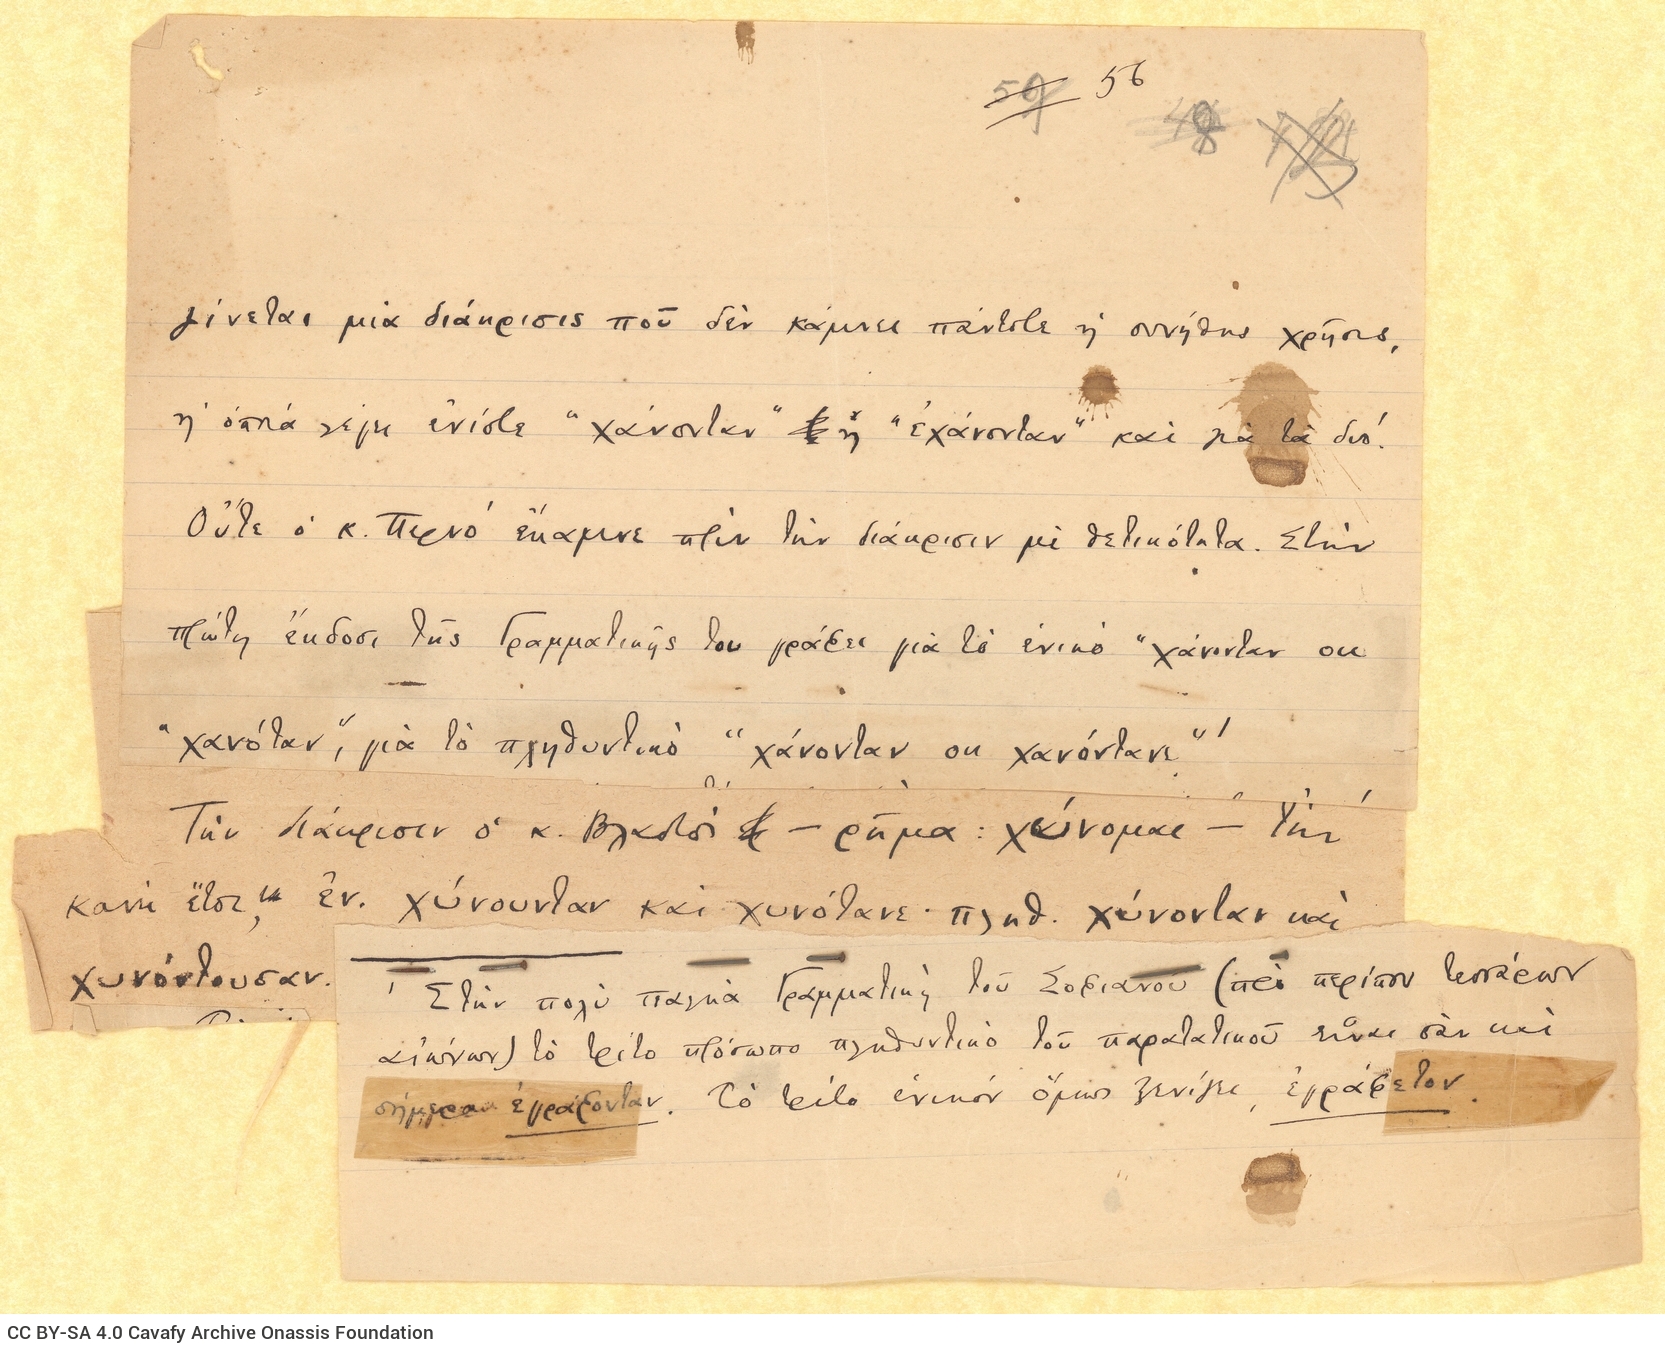 56
γίνεται μιὰ διάκρισις ποῦ δὲν κάμνει πάντοτε ἡ συνήθης χρῆσις,
ἡ ὁποία λέγει ἐνίοτε "χάνονταν" ἢ "ἐχάνονταν" καὶ γιὰ τὰ δυό.
Οὔτε ὁ κ. Περνό ἔκαμνε πρὶν τὴν διάκρισιν μὲ θετικότητα. Στὴν
πρώτη ἔκδοσι τῆς Γραμματικῆς του γράφει γιὰ τὸ ἑνικὸ "χάνονταν ου
"χανόταν", γιὰ τὸ πληθυντικὸ "χάνονταν ου χανόντανε"¹
Τὴν διάκρισιν ὁ κ. Βλαστὸς — ρῆμα: χύνομαι — τὴν
κάνει ἔτσι, ἑν. χύνουνταν καὶ χυνότανε· πληθ. χύνονταν καὶ
χυνόντουσαν.
¹ Στὴν πολὺ παληὰ Γραμματικὴ τοῦ Σοφιανοῦ (πρὸ περίπου τεσσάρων
αἰώνων) τὸ τρίτο πρόσωπο πληθυντικὸ τοῦ παρατατικοῦ εἶναι σὰν καὶ
σήμερα ἐγράφονταν. Τὸ τρίτο ἑνικὸν ὅμως ξενίζει, ἐγράφετον.
CC BY-SA 4.0 Cavafy Archive Onassis Foundation